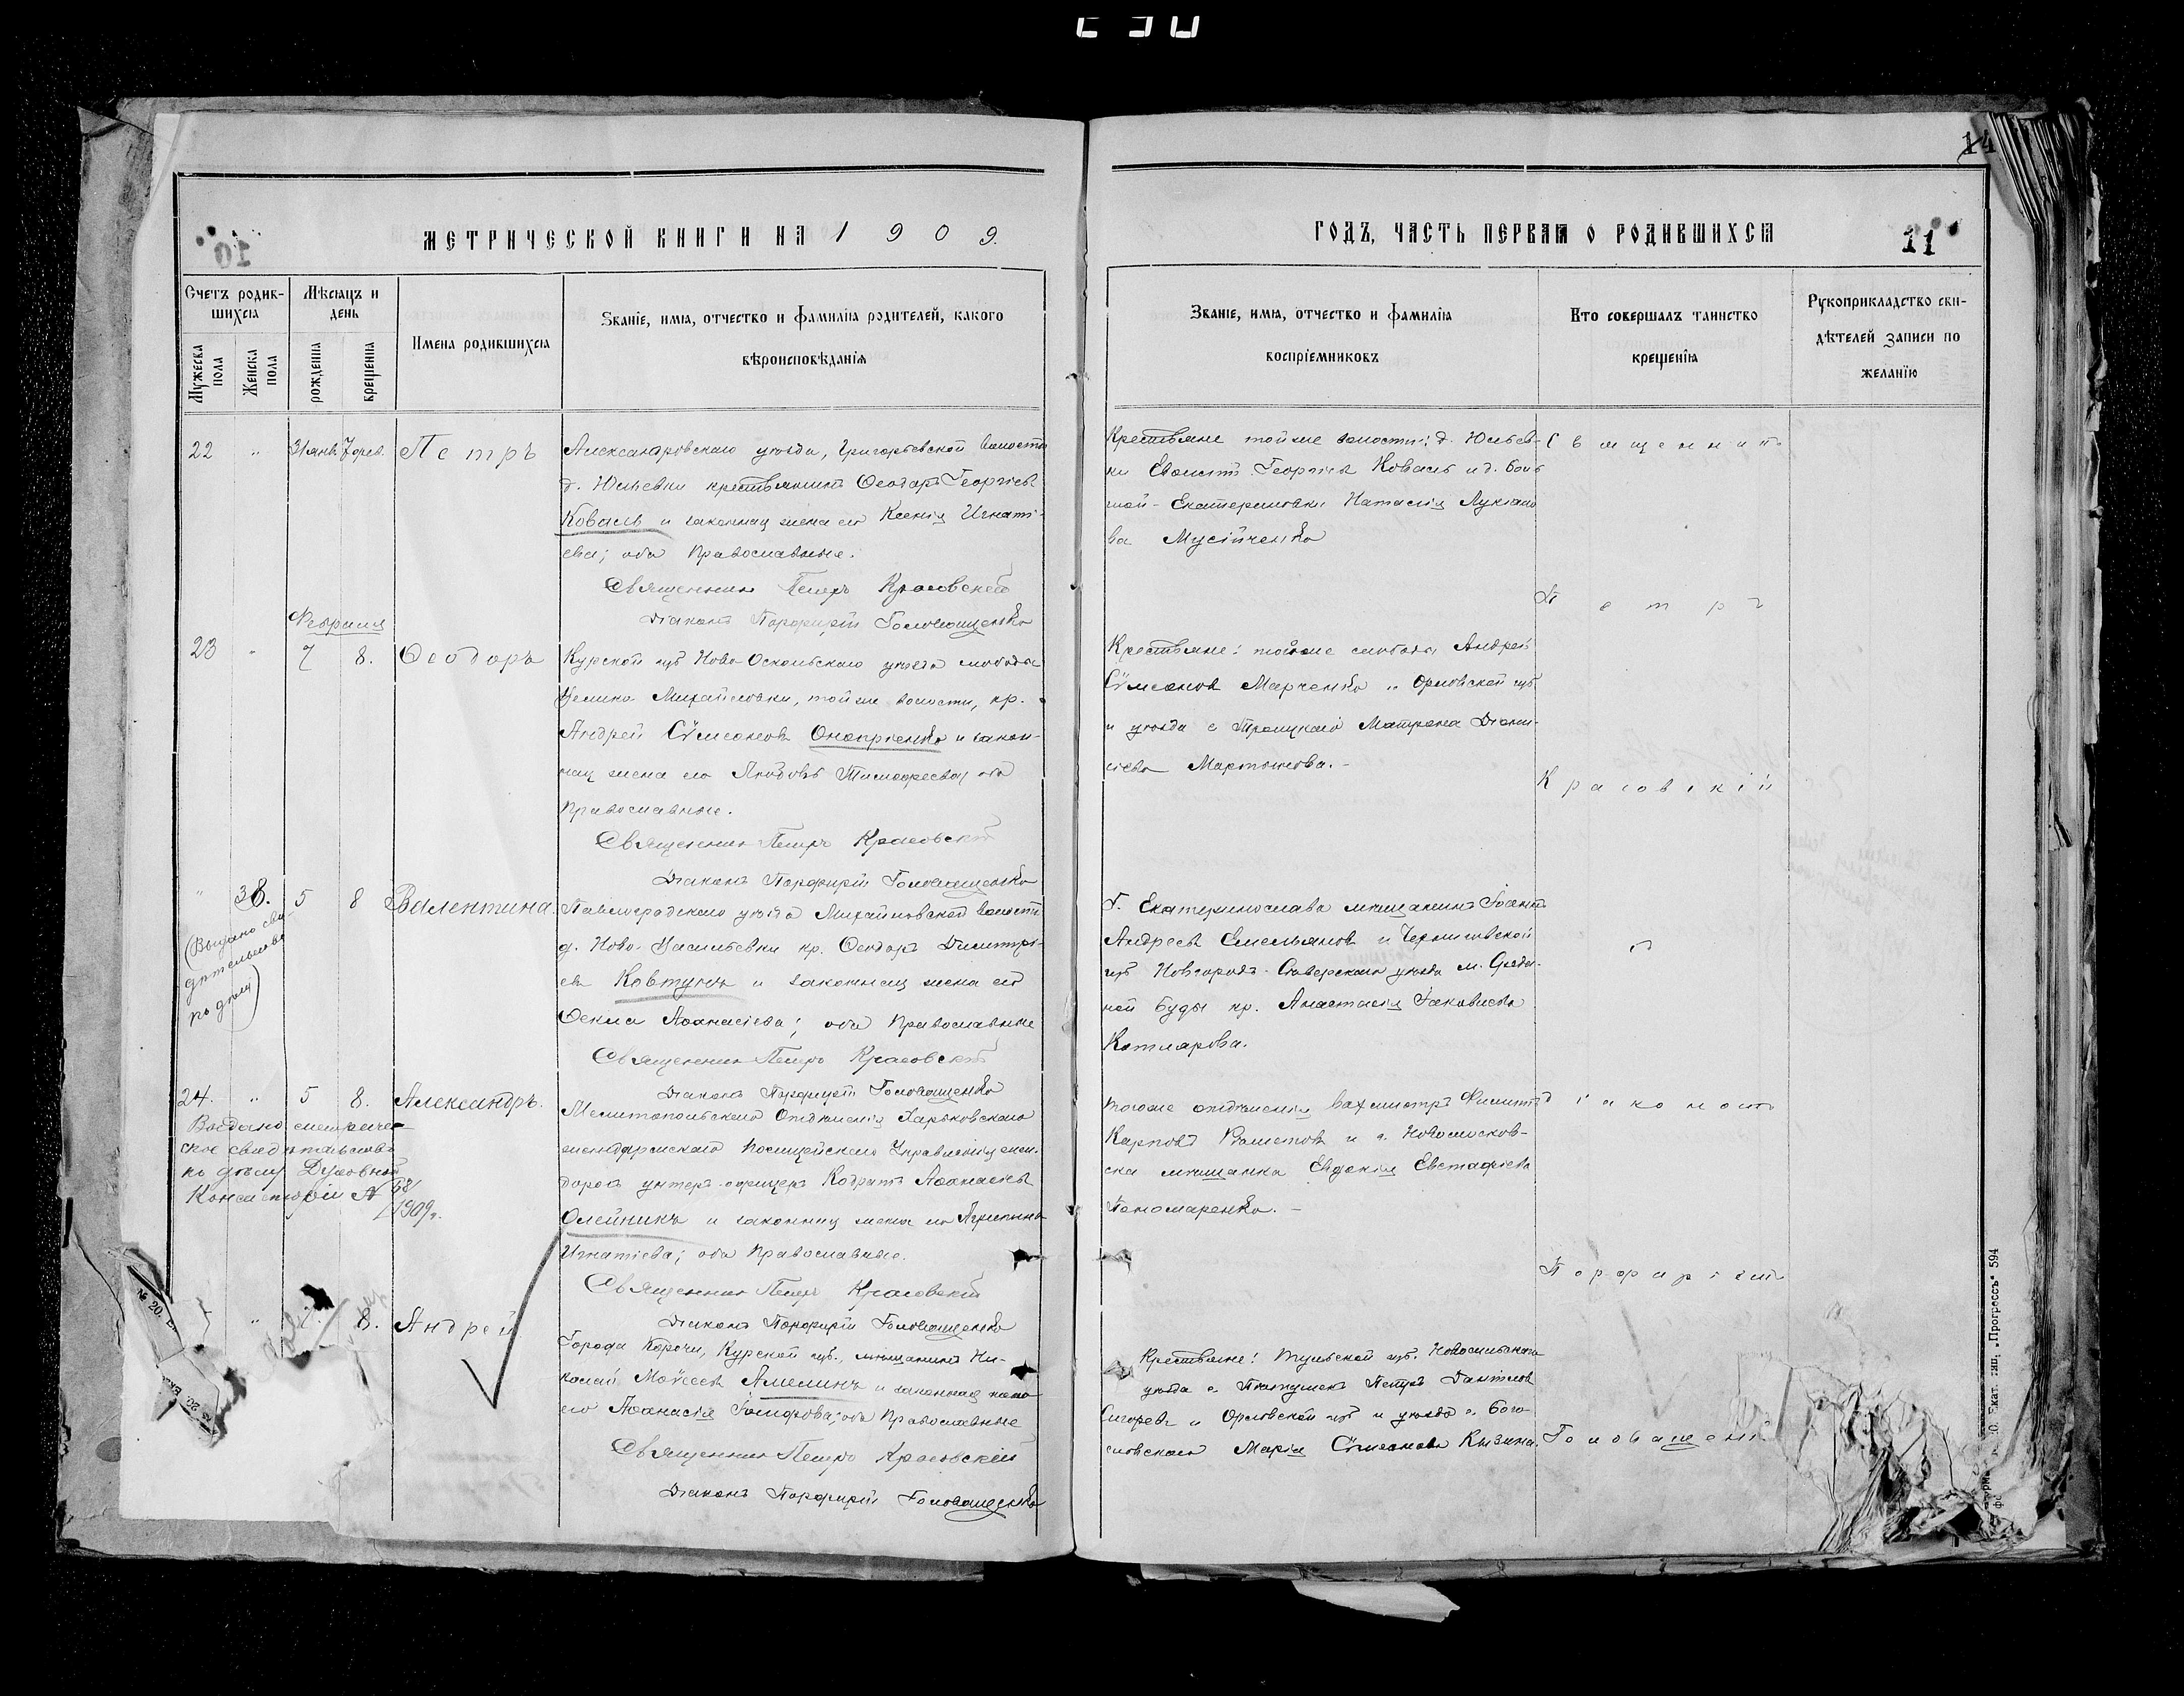 14
МЕТРИЧЕСКОЙ КНИГИ НА 1909.
ГОДЪ, ЧАСТЬ ПЕРВАЯ О РОДИВШИХСЯ
11
Счетъ родив-
шихся
Мужеска пола
Женска пола
Мѣсяцъ и
день
рожденія
крещенія
Имена родившихся
Званіе, имя, отчество и фамилія родителей, какого
вѣроисповѣданія
Званіе, имя, отчество и фамилія
воспріемниковъ
Кто совершалъ таинство
крещенія
Рукоприкладство сви-
дѣтелей записи по
желанію
22 " 31 янв. 7 фев. Петръ
Александровскаго уѣзда, Григорьевской волости
д. Юльевки крестьянинъ Ѳеодоръ Георгіевъ
Коваль и законная жена его Ксенія Игнаті-
ева; оба Православные.
Священникъ Петръ Красовскій
Діаконъ Порфирій Головащенко
Крестьяне той же волости: д. Юльев-
ки Георгіевъ Коваль и д. Боль
шой-Екатериновки Наталія Лукіано
ва Мусійченко
Февраля
23 " 7 8. Ѳеодоръ
Курской губ. Ново-Оскольскаго уѣзда слободы
Велико Михайловки, той же волости, кр.
Андрей Сѵмеоновъ Онопріенко и закон-
ная жена его Любовь Тимоѳеева, оба
Православные.
Священникъ Петръ Красовскій
Діаконъ Порфирій Головащенко
Крестьяне: той же слободы Андрей
Сѵмеоновъ Марченко и Орловской губ.
и уѣзда с. Троицкаго Матрона Діони-
сіева Мартынова.-
" 38. 5 8 Валентина
(Выдано сви
дѣтельство
по дѣлу)
Павлоградскаго уѣзда Михайловской волости
д. Ново-Васильевки кр. Ѳеодоръ Димитрі-
евъ Ковтунъ и законная жена его
Ѳекла Аѳанасіева; оба Православные
Священникъ Петръ Красовскій
Діаконъ Порфирій Головащенко
Г. Екатеринослава мѣщанинъ Іоаннъ
Андреевъ Емельяновъ и Черниговской
губ. Новгородъ-Сѣверскаго уѣзда м. Среди-
ной Буды кр. Анастасія Іаковлева
Котлярова.
24. " 5 8. Александръ.
Выдано метриче-
ское свидѣтельство
по дѣлу Духовной
Консисторіи № 68/1909г.
Мелитопольскаго Отдѣленія Харьковскаго
жандармскаго Полицейскаго Управленія жан-
дармъ унтеръ-офицеръ Кодратъ Аѳанасіевъ
Олейникъ и законная жена его Агрипина
Игнатіева; оба Православные.
Священникъ Петръ Красовскій
Діаконъ Порфирій Головащенко
того же отдѣленія вахмистръ Филиппъ
Карповъ и г. Новомосков-
ска мѣщанка Евдокія Евстафіева
Пономаренко.-
" 7. 8. Андрей
Города Корочи, Курской губ., мѣщанинъ Ни-
колай Моѵсеевъ Амелинъ и законная жена
его Аѳанасія Ѳедорова; оба Православные
Священникъ Петръ Красовскій
Діаконъ Порфирій Головащенко
Крестьяне: Тульской губ. Новосильскаго
уѣзда с. Петръ Даніиловъ
и Орловской губ. и уѣзда с. Бого-
словскаго Марія Сѵмеонова
Священникъ
Петръ
Красовскій
съ
діакономъ
Порфиріемъ
Головащенко
Екат. тип. „Прогрессъ" 594